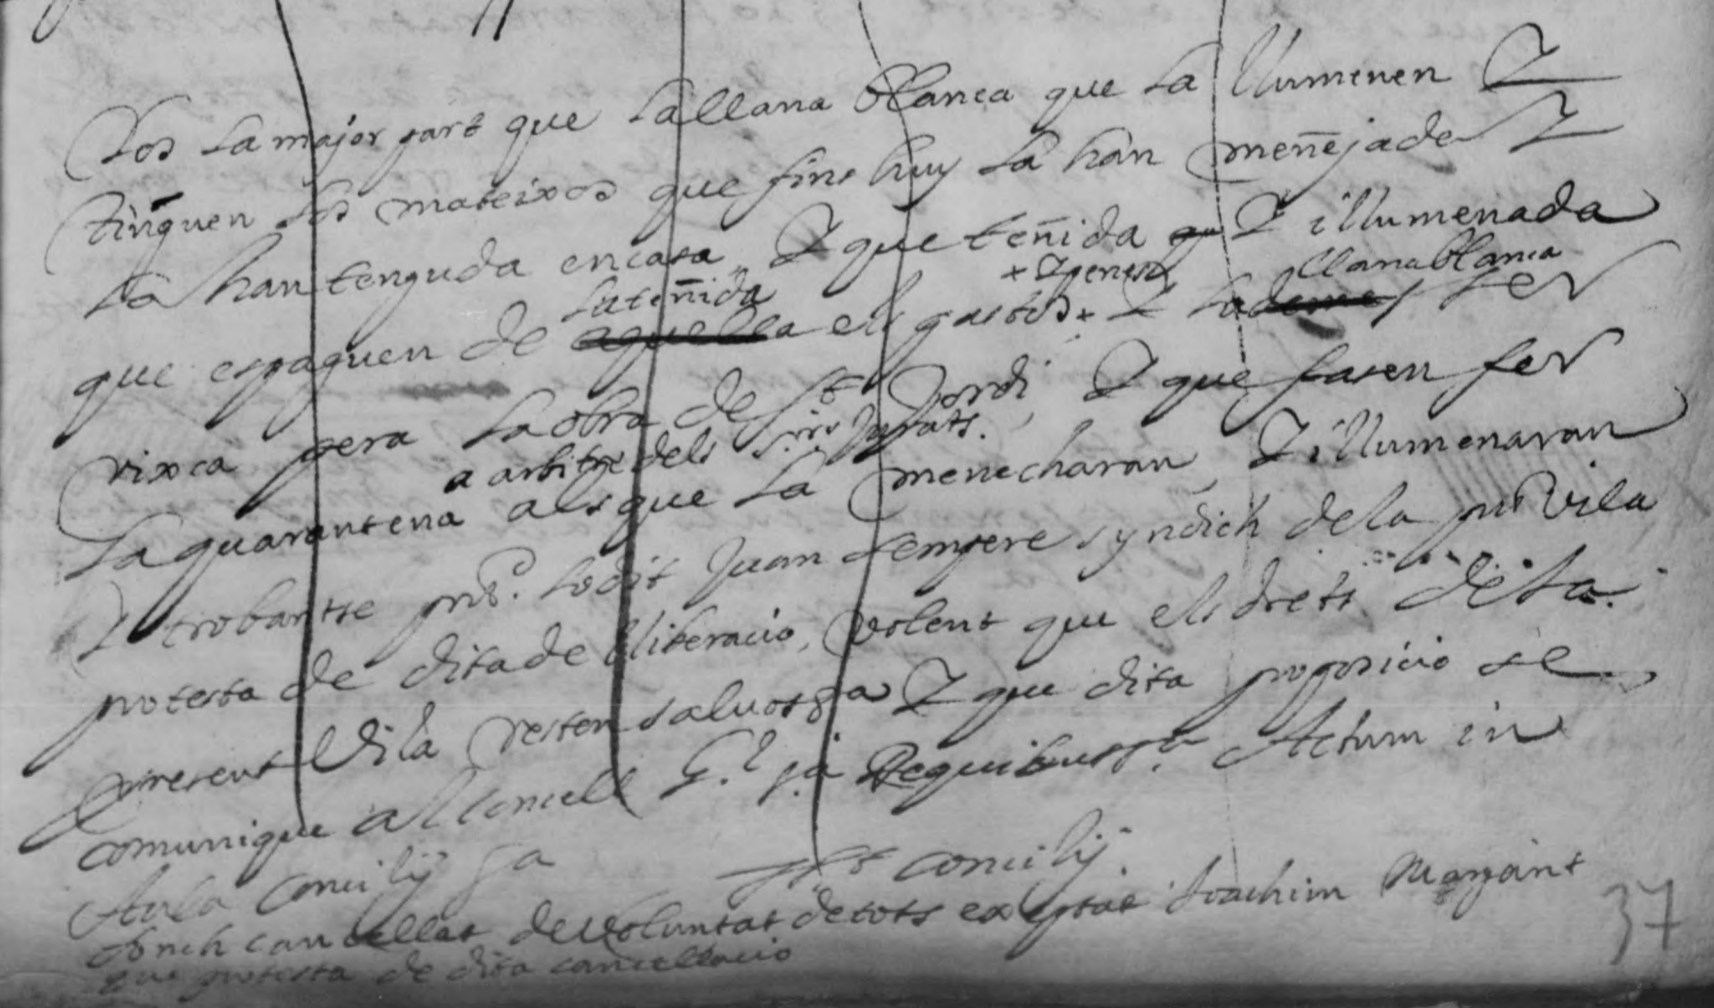 Tos la major part que la llana blanca que la llumenen Y
tinguen los mateixos que fins huy la han meñejade Y
la han tenguda en casa Y que teñida Y illumenada
la teñida + Y penes llana blanca
que es paguen de aquella els gastos + Y la fer
vixca pera la obra de St Jordi Y que fasen fer
a arbitre dels Srs Jurats.
la quarantena als que la menecharan Y illumenaran
Y trobantse pnt. lo dit Juan Sempere syndich de la pnt Vila
protesta de dita delliberacio, volent que els drets de la
present Vila resten salvos &a Y que dita proposicio se
comunique al Concell Gl. ja Requibus &a. Actum in
Aula Concilij &a concilij
fonch cancellat de voluntat de tots exceptat Joachim Margarit
que protesta de dita cancellacio
37